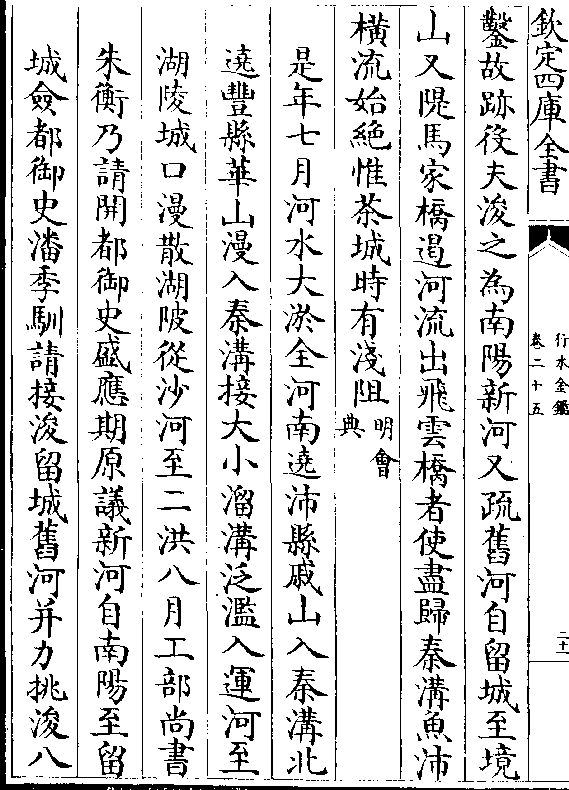 欽定四庫全書
行水金鑑
卷二十五
二十
鑿故跡役夫浚之為南陽新河又疏舊河自留城至境
山又隄馬家橋遏河流出飛雲橋者使盡歸秦溝魚沛
橫流始絶惟茶城時有淺阻明會典
是年七月河水大淤全河南遶沛縣戚山入秦溝北
遶豐縣華山漫入秦溝接大小溜溝泛濫入運河至
湖陵城口漫散湖陂從沙河至二洪八月工部尚書
朱衡乃請開都御史盛應期原議新河自南陽至留
城僉都御史潘季馴請接浚留城舊河并力挑浚八